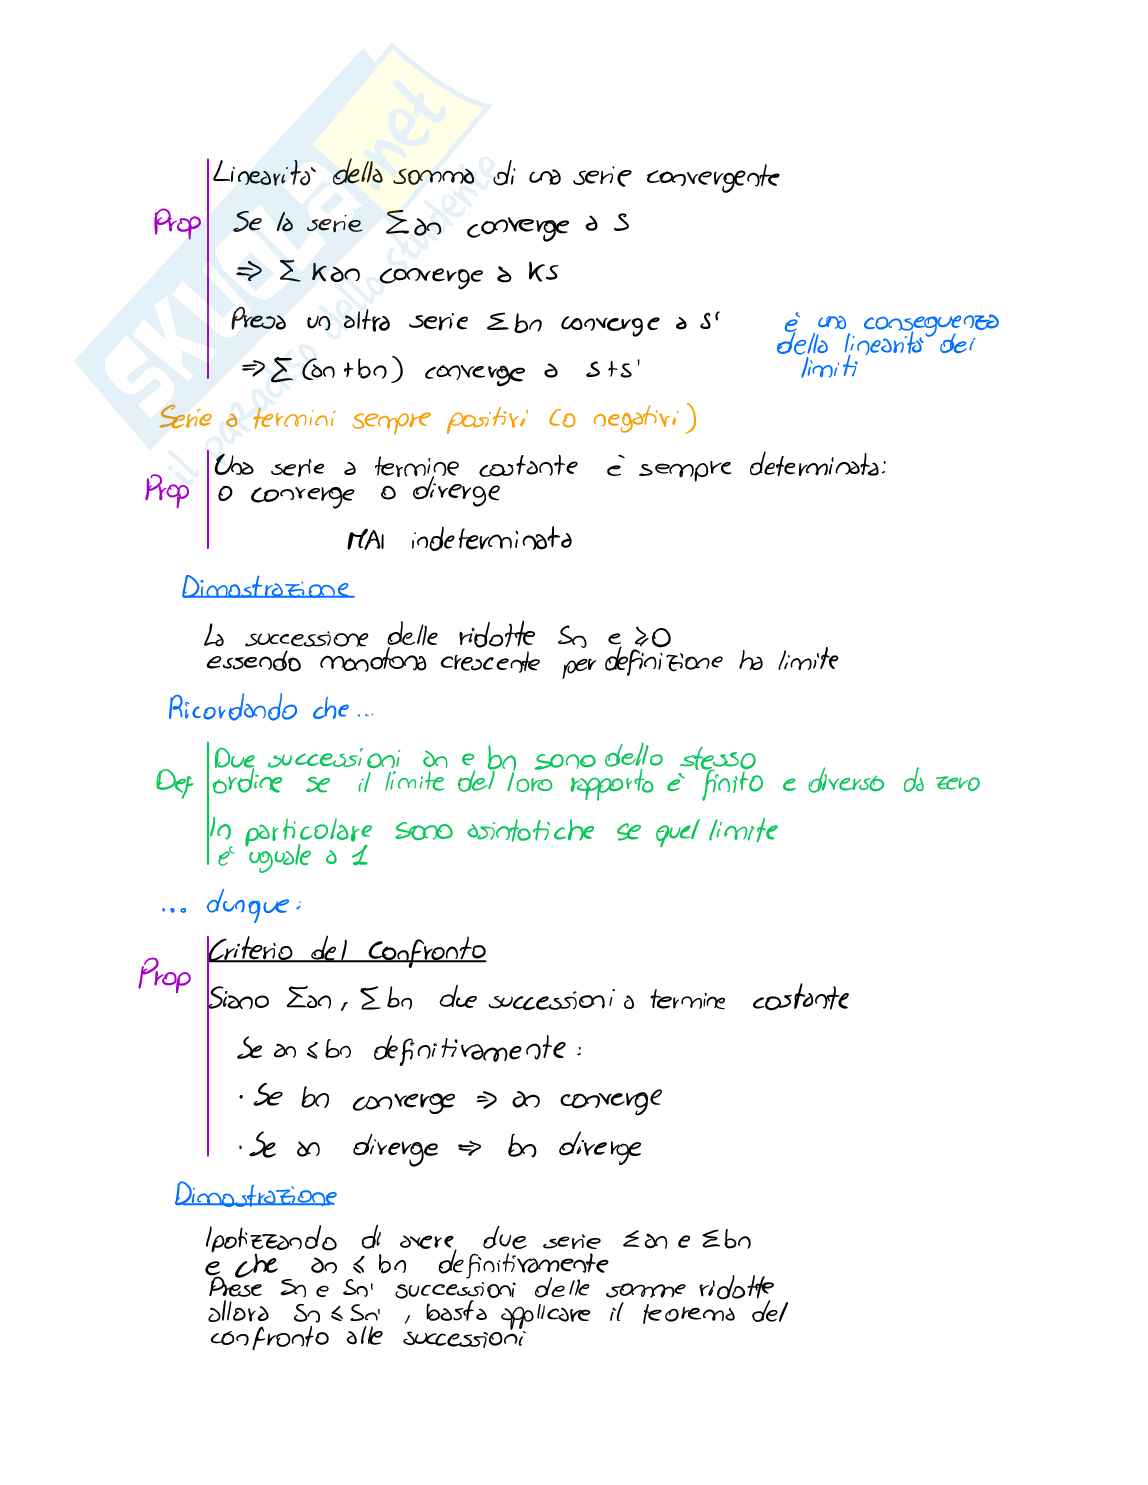 SKUOLA.net
il paradiso dello studente
Linearità della somma di una serie convergente
Prop
Se la serie Σan converge a S
⇒ Σ Kan converge a KS
Presa un altra serie Σbn converge a S'
è una conseguenza
della linearità dei
limiti
⇒ Σ (an+bn) converge a S+S'
Serie a termini sempre positivi (o negativi)
Prop
Una serie a termine costante è sempre determinata:
o converge o diverge
MAI indeterminata
Dimostrazione
La successione delle ridotte Sn e ⩾0
essendo monotona crescente per definizione ha limite
Ricordando che ...
Def
Due successioni an e bn sono dello stesso
ordine se il limite del loro rapporto è finito e diverso da zero
In particolare sono asintotiche se quel limite
è uguale a 1
... dunque:
Prop
Criterio del Confronto
Siano Σan, Σbn due successioni a termine costante
Se an ⩽ bn definitivamente:
· Se bn converge ⇒ an converge
· Se an diverge ⇒ bn diverge
Dimostrazione
Ipotizzando di avere due serie Σan e Σbn
e che an ⩽ bn definitivamente
Prese Sn e Sn' successioni delle somme ridotte
allora Sn ⩽ Sn', basta applicare il teorema del
confronto alle successioni